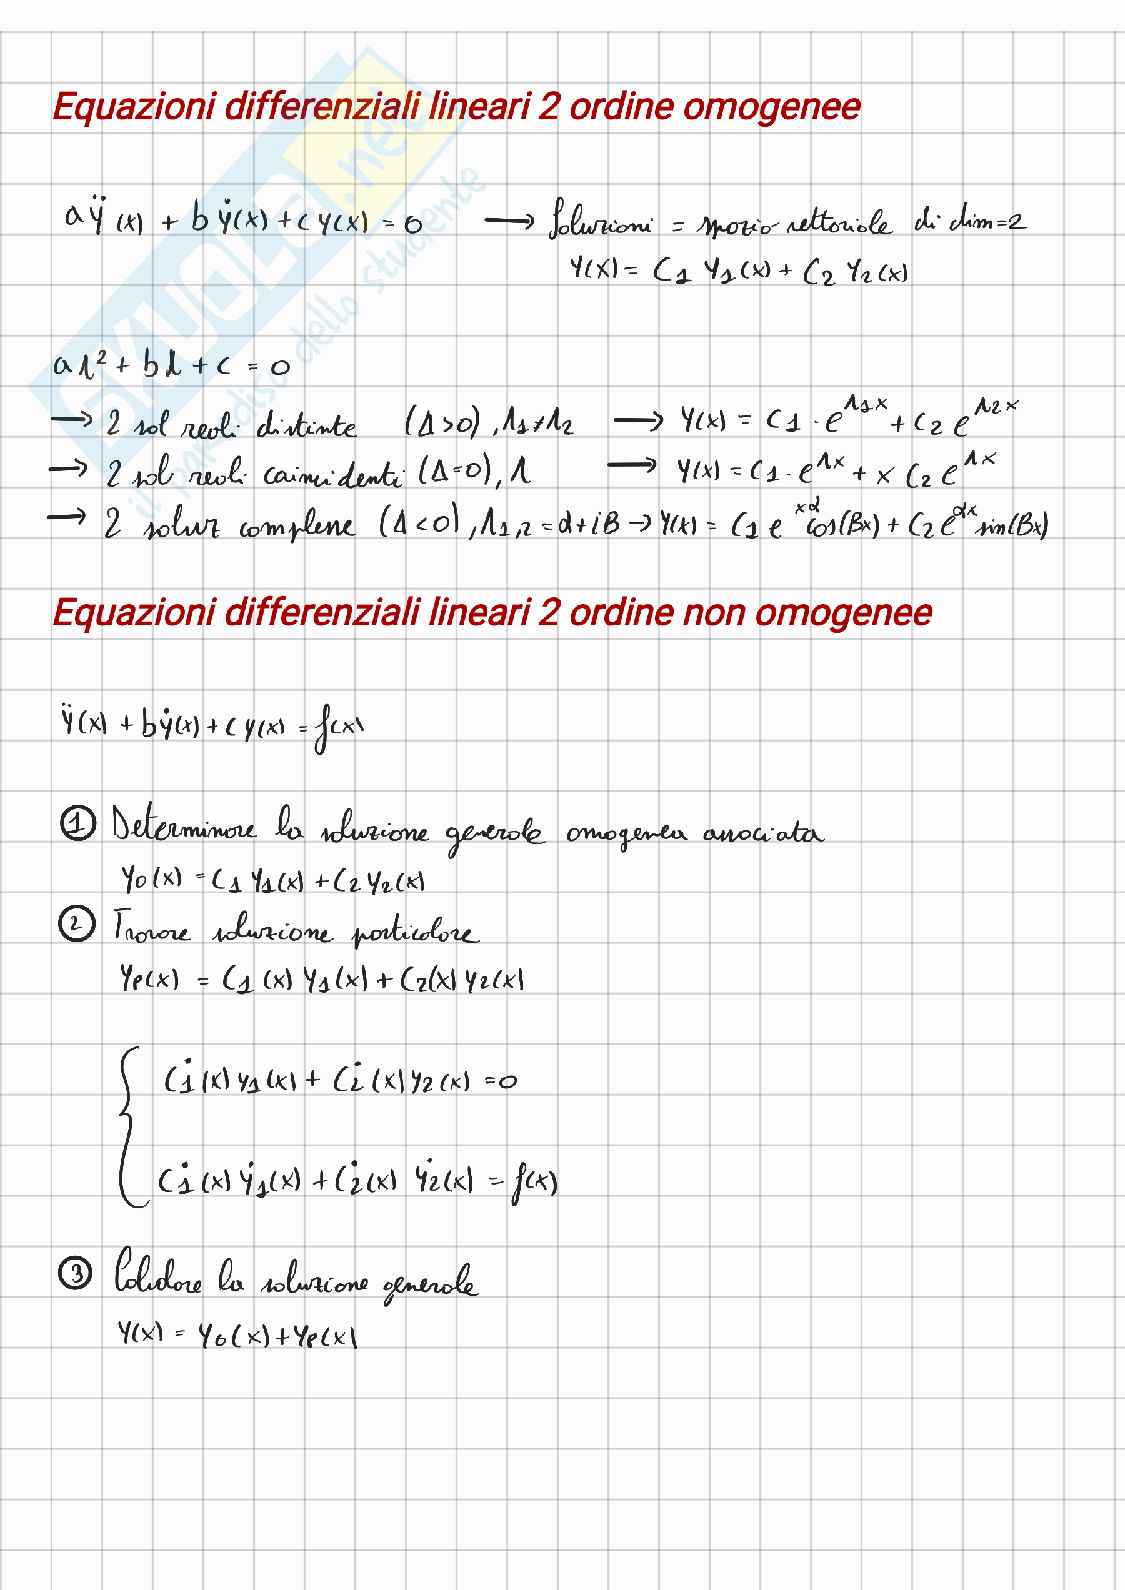 Equazioni differenziali lineari 2 ordine omogenee
aÿ(x) + bẏ(x) + cy(x) = 0 → Soluzioni = spazio vettoriale di dim=2
y(x) = C₁ y₁(x) + C₂ y₂(x)
aλ² + bλ + c = 0
→ 2 sol reali distinte (Δ>0), λ₁≠λ₂ → y(x) = C₁ · e^λ₁x + C₂ e^λ₂x
→ 2 sol reali coincidenti (Δ=0), λ → y(x) = C₁ · e^λx + x C₂ e^λx
→ 2 soluz complesse (Δ<0), λ₁,₂ = α+iβ → y(x) = C₁ e^xα cos(βx) + C₂ e^αx sin(βx)
Equazioni differenziali lineari 2 ordine non omogenee
ÿ(x) + bẏ(x) + cy(x) = f(x)
① Determinare la soluzione generale omogenea associata
y₀(x) = C₁ y₁(x) + C₂ y₂(x)
② Trovare soluzione particolare
yₚ(x) = C₁(x) y₁(x) + C₂(x) y₂(x)
{ Ċ₁(x) y₁(x) + Ċ₂(x) y₂(x) = 0
Ċ₁(x) ẏ₁(x) + Ċ₂(x) ẏ₂(x) = f(x)
③ la soluzione generale
y(x) = y₀(x) + yₚ(x)
SKUOLA.net
il paradiso dello studente